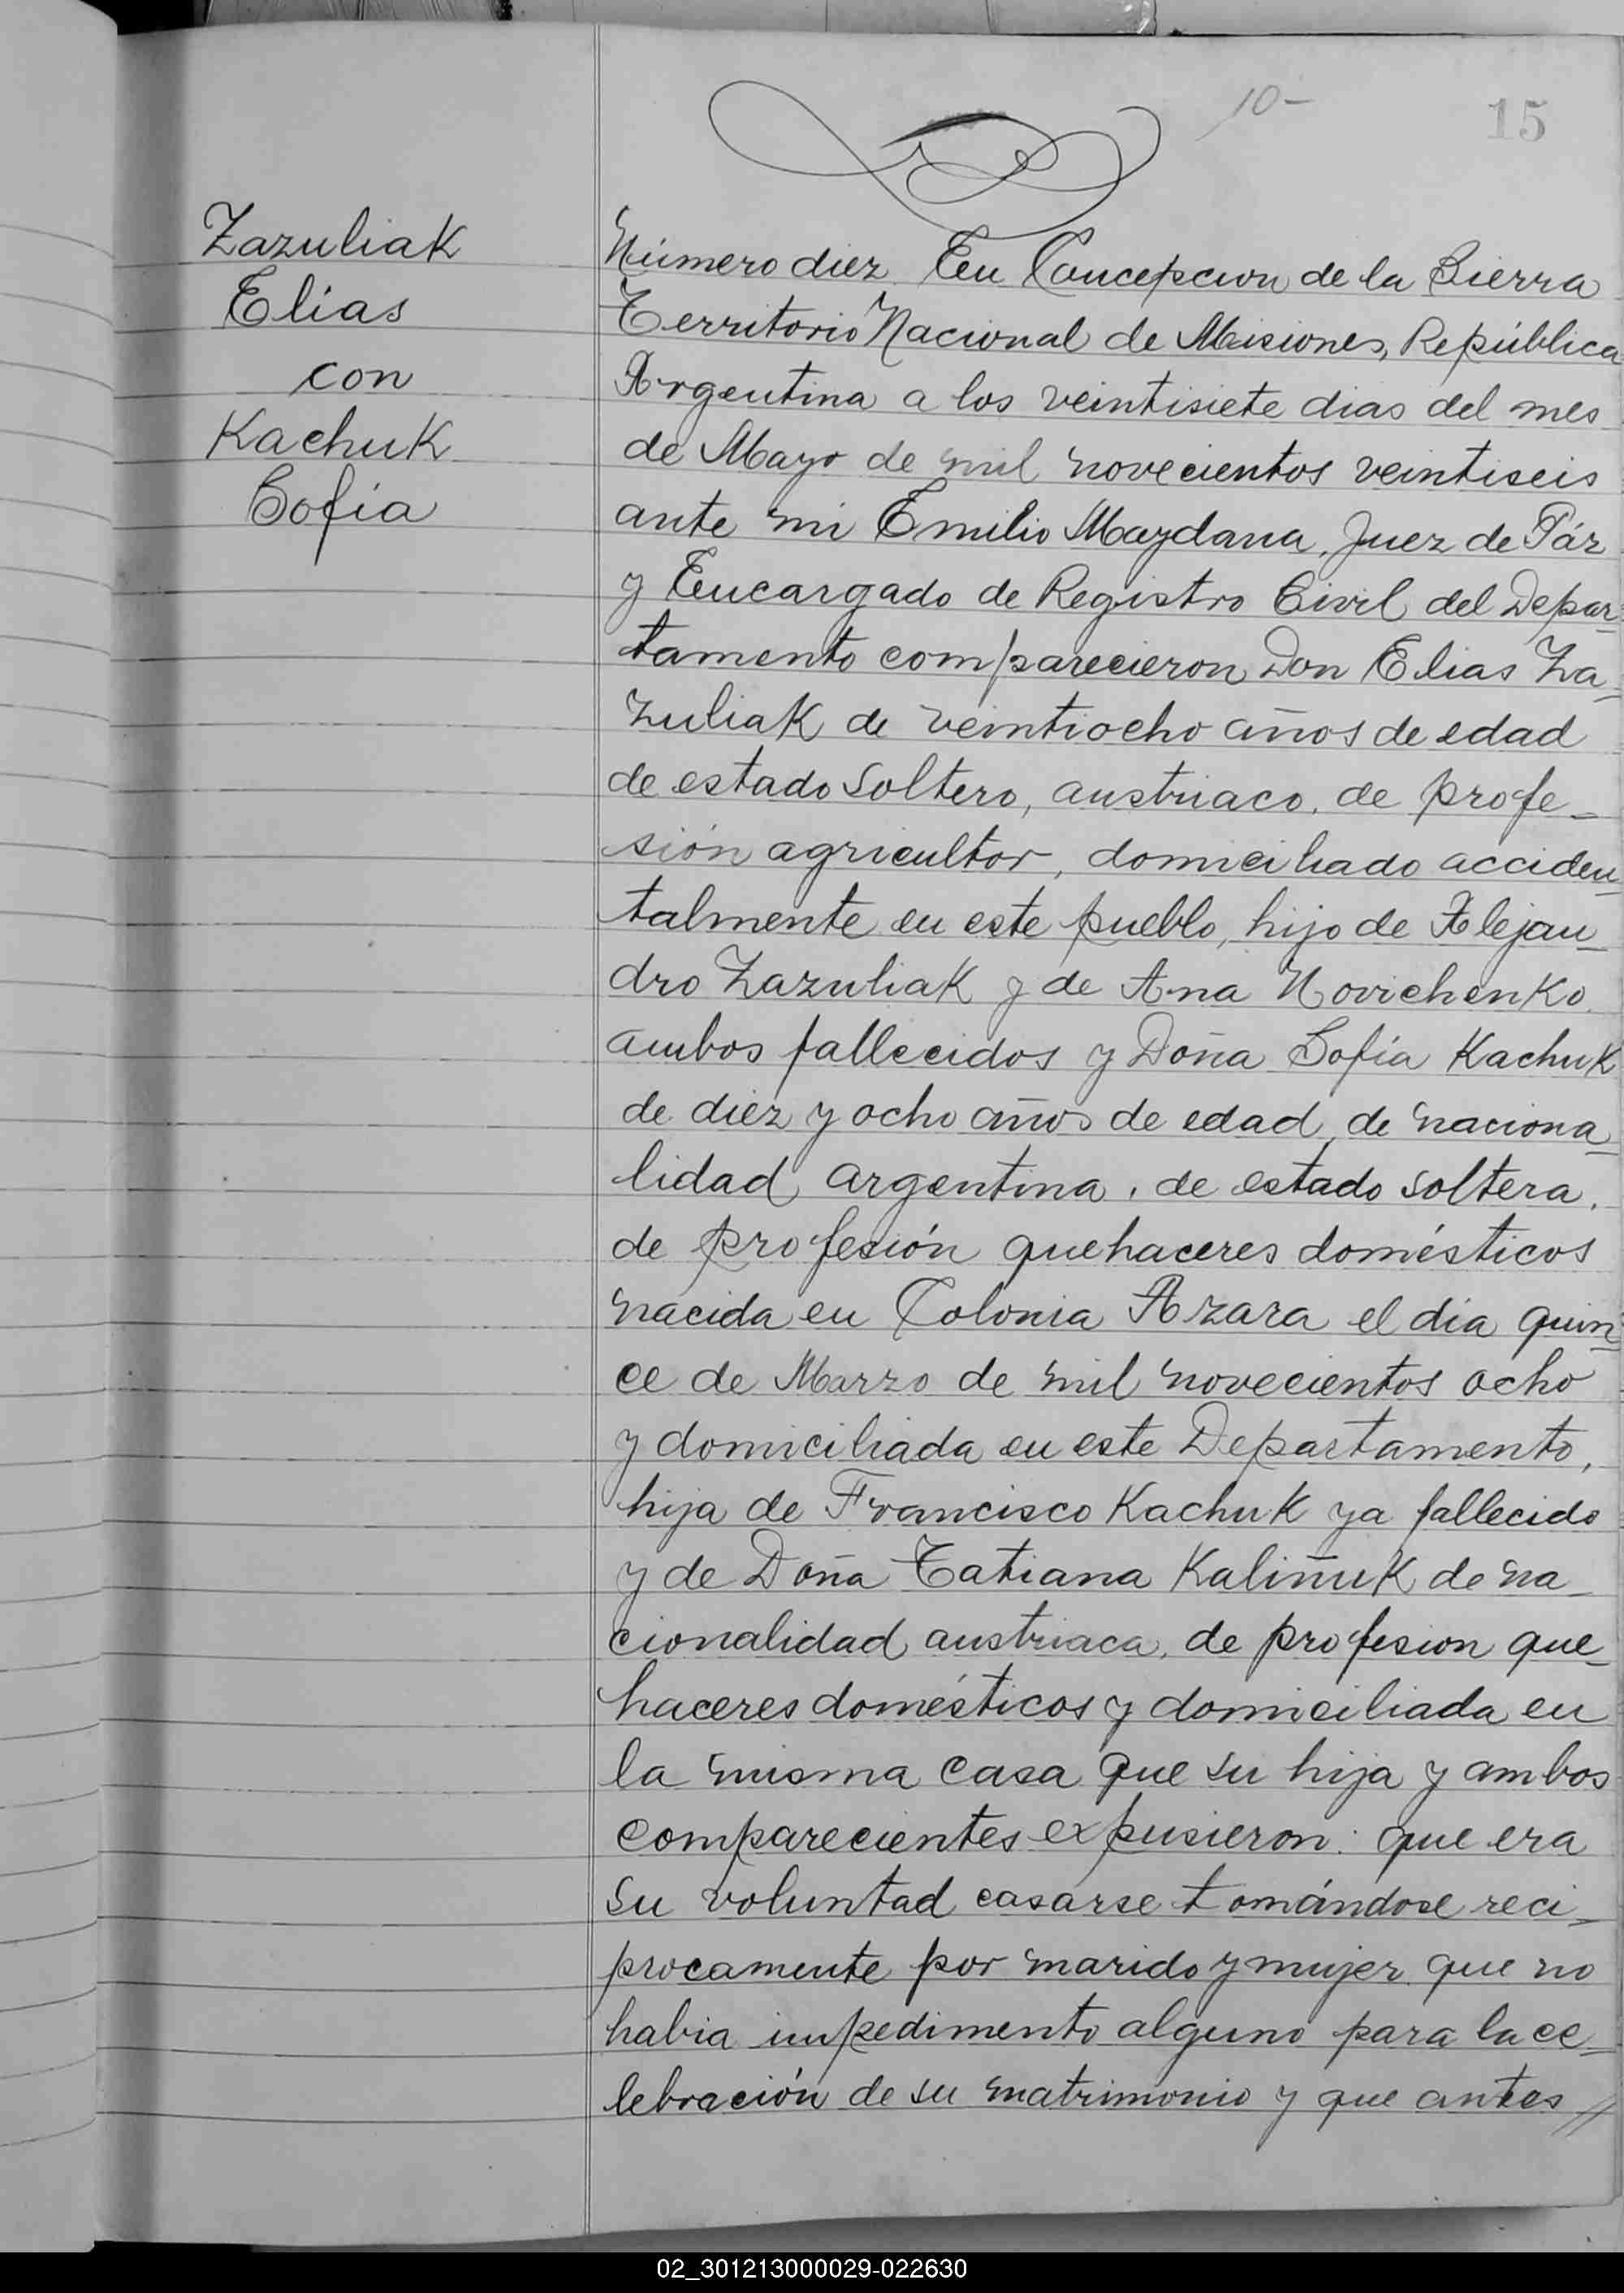 10-
15
Zazuliak
Elias
con
Kachuk
Sofía
Número diez En Concepcion de la Sierra
Territorio Nacional de Misiones, República
Argentina a los veintisiete dias del mes
de Mayo de mil novecientos veintiseis
ante mi Emilio Maydana, Juez de Páz
y Encargado de Registro Civil del Depar_
tamento comparecieron Don Elias Za_
zuliak de veintiocho años de edad
de estado soltero, austriaco, de profe_
sión agricultor, domiciliado acciden_
talmente en este pueblo, hijo de Alejan_
dro Zazuliak y de Ana Novichenko
ambos fallecidos y Doña Sofía Kachuk
de diez y ocho años de edad, de naciona_
lidad argentina, de estado soltera,
de profesión quehaceres domésticos
nacida en Colonia Azara el dia quin_
ce de Marzo de mil novecientos ocho
y domiciliada en este Departamento,
hija de Francisco Kachuk ya fallecido
y de Doña Tatiana Kaliñuk de na_
cionalidad austriaca, de profesion que_
haceres domésticos y domiciliada en
la misma casa que su hija y ambos
comparecientes expusieron: que era
su voluntad casarse tomándose reci_
procamente por marido y mujer que no
habia impedimento alguno para la ce_
lebración de su matrimonio y que antes //
02_301213000029-022630